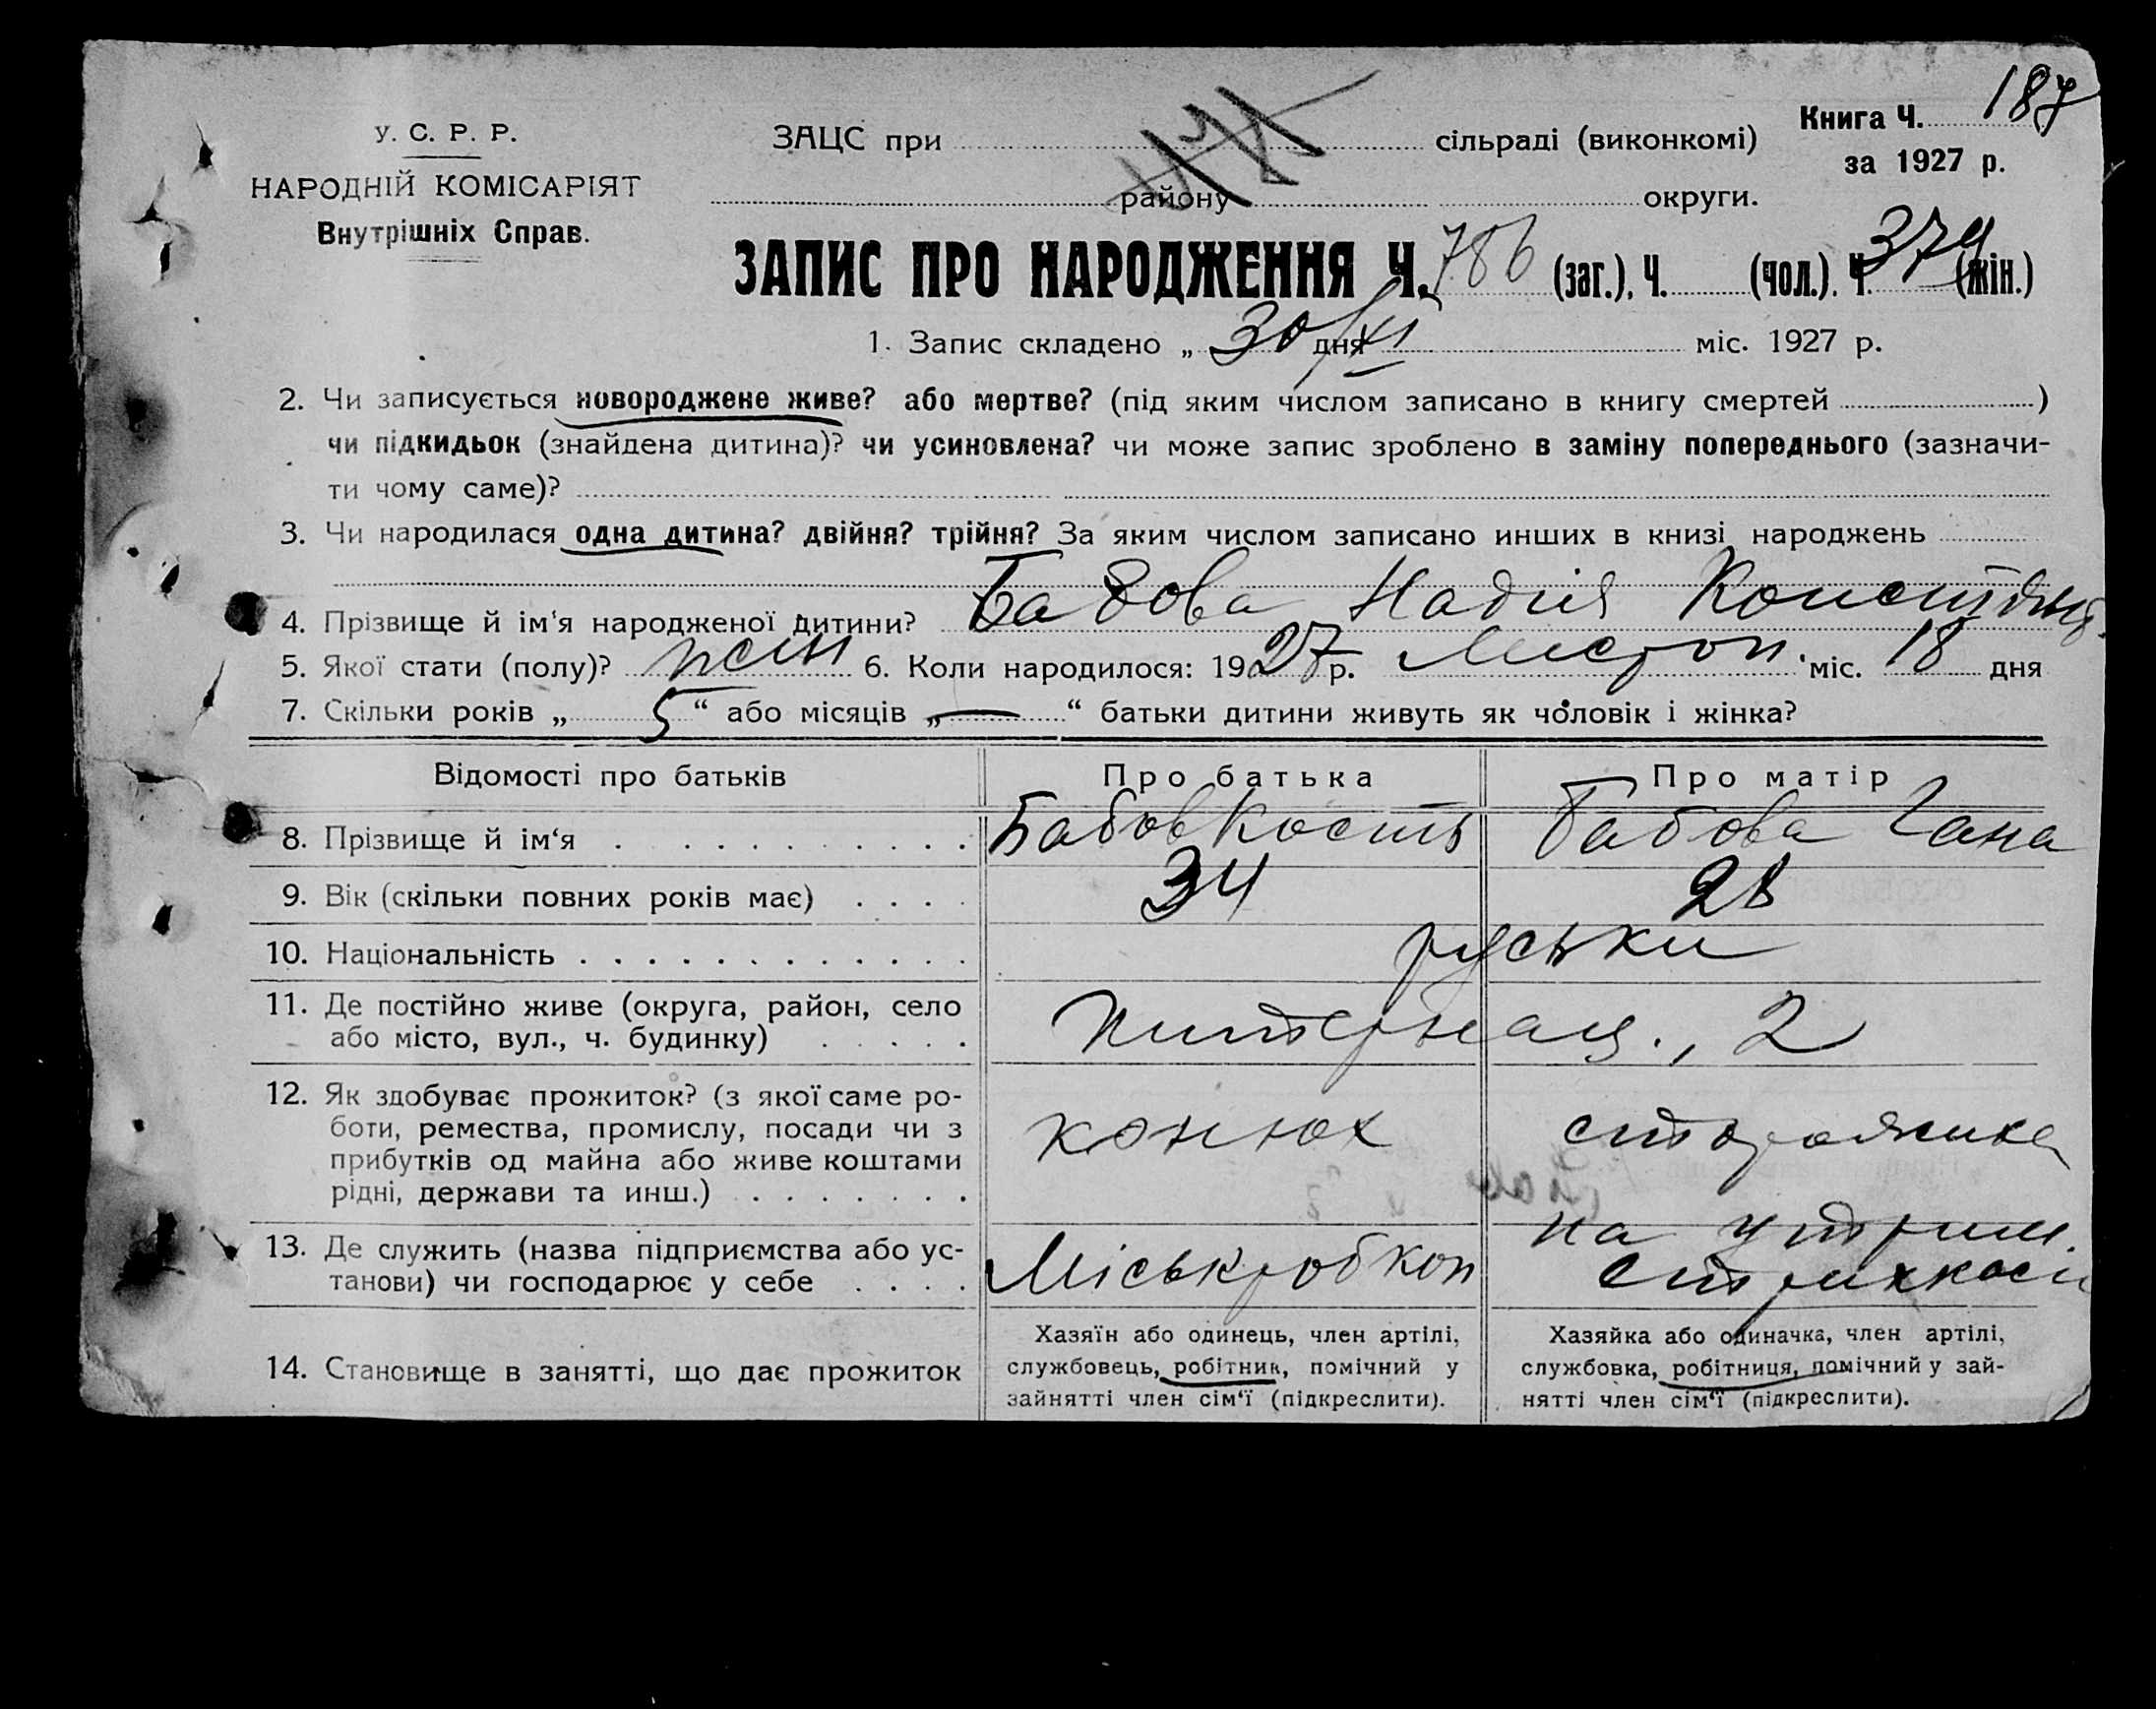 Книга Ч. 187
У. С. Р. Р.
ЗАЦС при сільраді (виконкомі)
за 1927 р.
НАРОДНІЙ КОМІСАРІЯТ
району округи.
Внутрішніх Справ.
ЗАПИС ПРО НАРОДЖЕННЯ Ч. 786 (заг.), Ч. (чол.). Ч. 379 (жін.)
1. Запис складено „ 30/XI дня міс. 1927 р.
2. Чи записується новороджене живе? або мертве? (під яким числом записано в книгу смертей )
чи підкидьок (знайдена дитина)? чи усиновлена? чи може запис зроблено в заміну попереднього (зазначи-
ти чому саме)?
3. Чи народилася одна дитина? двійня? трійня? За яким числом записано инших в книзі народжень
4. Прізвище й ім'я народженої дитини? Бабова Надія Констянт.
5. Якої стати (полу)? жін 6. Коли народилося: 1927 р. Листоп. міс. 18 дня
7. Скільки років „ 5 “ або місяців „ — “ батьки дитини живуть як чоловік і жінка?
Відомості про батьків Про батька Про матір
8. Прізвище й ім'я . . . . . . . . . . Бабов Кость Бабова Гана
9. Вік (скільки повних років має) . . . . 34 28
10. Національність . . . . . . . . . . . . . руськи
11. Де постійно живе (округа, район, село
або місто, вул., ч. будинку) . . . . . Интернац., 2
12. Як здобуває прожиток? (з якої саме ро-
боти, ремества, промислу, посади чи з
прибутків од майна або живе коштами
рідні, держави та инш.) . . . . . . . конюх сторожика
на утрим.
13. Де служить (назва підприємства або ус-
танови) чи господарює у себе . . . . Міськробкоп Страхкаси
14. Становище в занятті, що дає прожиток
Хазяїн або одинець, член артілі,
службовець, робітник, помічний у
зайнятті член сім'ї (підкреслити).
Хазяйка або одиначка, член артілі,
службовка, робітниця, помічний у зай-
нятті член сім'ї (підкреслити).